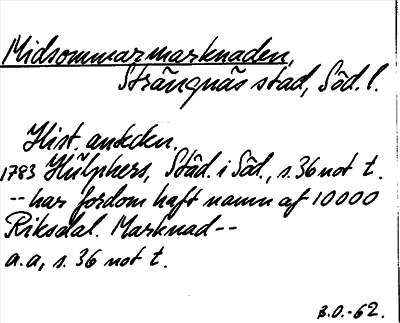 Midsommarmarknaden,
Strängnäs stad, Söd. l.
Hist. anteckn.
1783 Hülphers, Städ. i Söd., s. 36 not t.
-- har fordom haft namn af 10000
Riksdal. Marknad --
a.a, s. 36 not t.
B.O.-62.